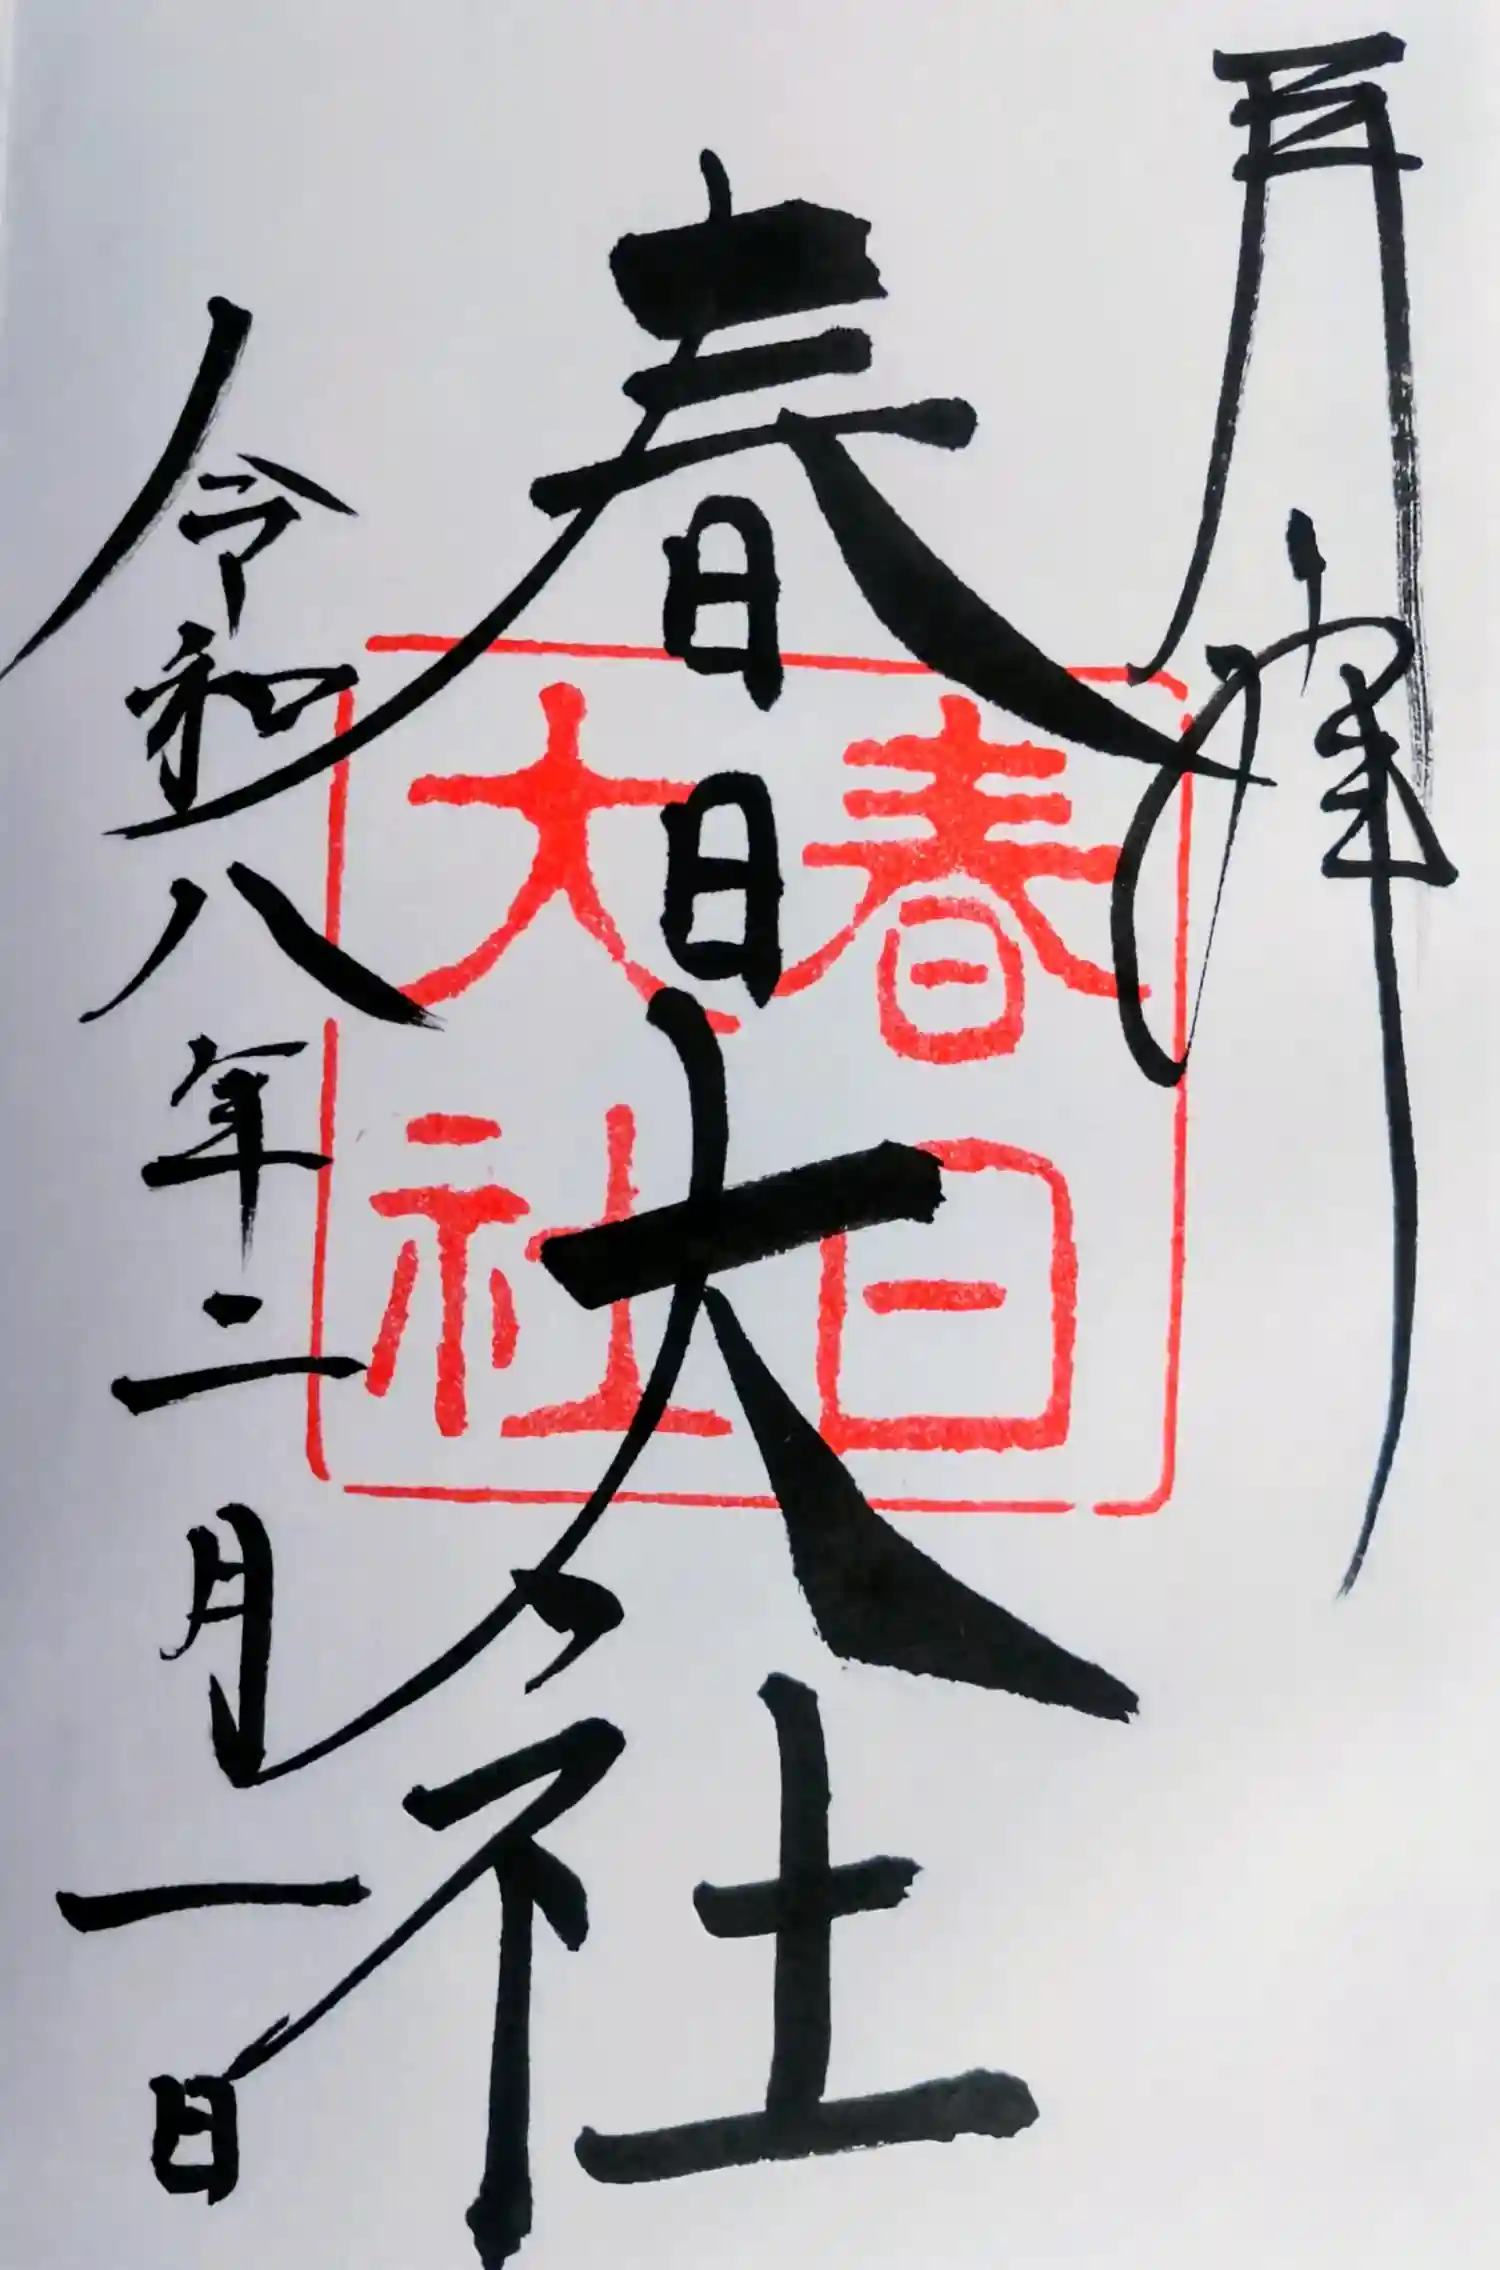 奉拝
春日大社
令和八年二月一日
春日
大社